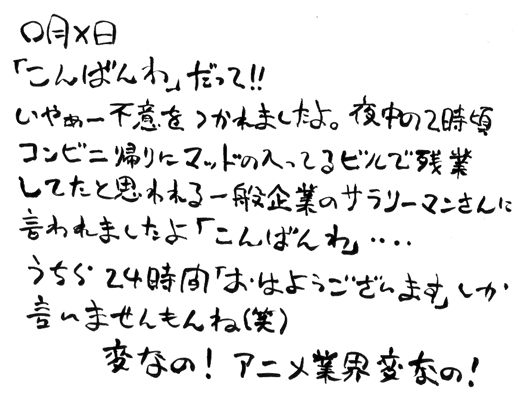 〇月×日
「こんばんわ」だって!!
いやぁー不意をつかれましたよ。夜中の2時頃
コンビニ帰りにマッドの入ってるビルで残業
してたと思われる一般企業のサラリーマンさんに
言われましたよ「こんばんわ」‥‥
うちら24時間「おはようございます」しか
言いませんもんね(笑)
変なの！アニメ業界変なの！